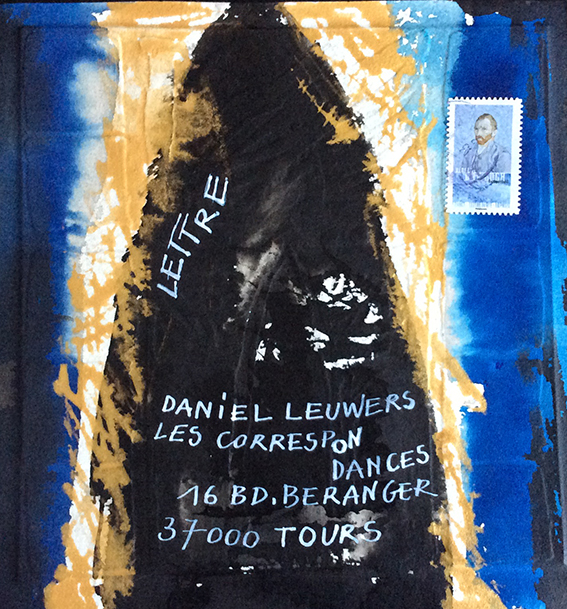 LETTRE
DANIEL LEUWERS
LES CORRESPON
DANCES
16 BD. BERANGER
37000 TOURS